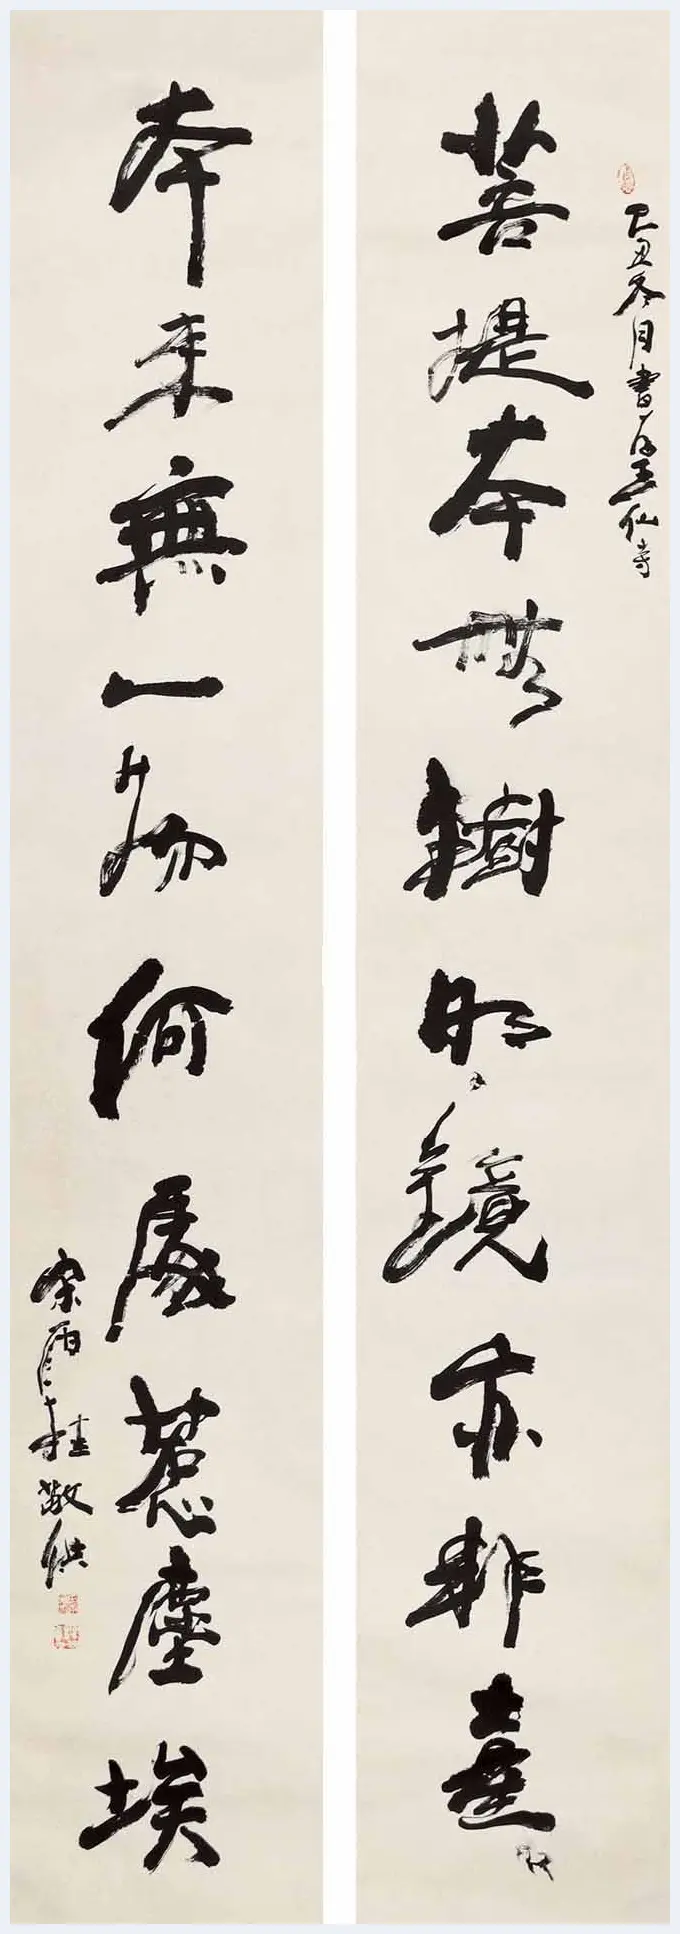 己丑冬月書仙寺
菩提本無樹明鏡亦非臺
本來無一物何處惹塵埃
敬供